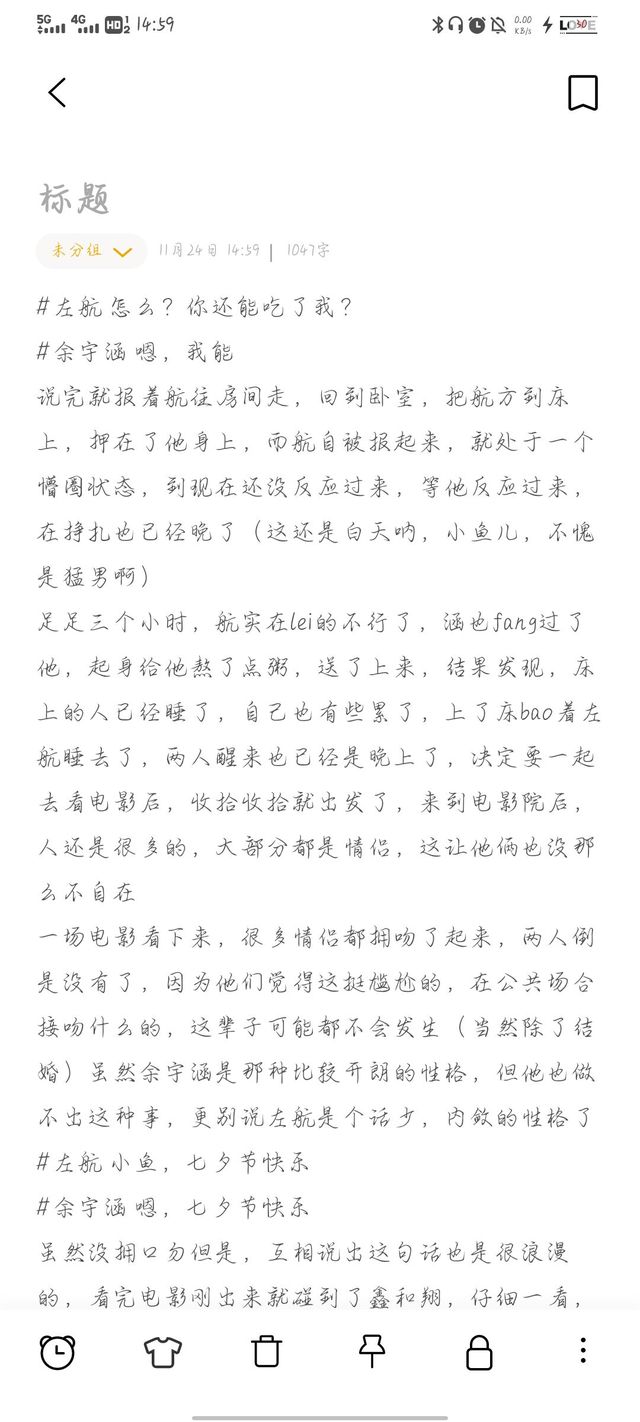 5G 4G HD 1 2 14:59 0.00 KB/s LOVE 50
标题
未分组 11月24日 14:59 | 1047字
#左航 怎么？你还能吃了我？
#余宇涵 嗯，我能
说完就报着航往房间走，回到卧室，把航方到床
上，押在了他身上，而航自被报起来，就处于一个
懵圈状态，到现在还没反应过来，等他反应过来，
在挣扎也已经晚了（这还是白天呐，小鱼儿，不愧
是猛男啊）
足足三个小时，航实在lei的不行了，涵也fang过了
他，起身给他熬了点粥，送了上来，结果发现，床
上的人已经睡了，自己也有些累了，上了床bao着左
航睡去了，两人醒来也已经是晚上了，决定要一起
去看电影后，收拾收拾就出发了，来到电影院后，
人还是很多的，大部分都是情侣，这让他俩也没那
么不自在
一场电影看下来，很多情侣都拥吻了起来，两人倒
是没有了，因为他们觉得这挺尴尬的，在公共场合
接吻什么的，这辈子可能都不会发生（当然除了结
婚）虽然余宇涵是那种比较开朗的性格，但他也做
不出这种事，更别说左航是个话少，内敛的性格了
#左航 小鱼，七夕节快乐
#余宇涵 嗯，七夕节快乐
虽然没拥口勿但是，互相说出这句话也是很浪漫
的，看完电影刚出来就碰到了鑫和翔，仔细一看，